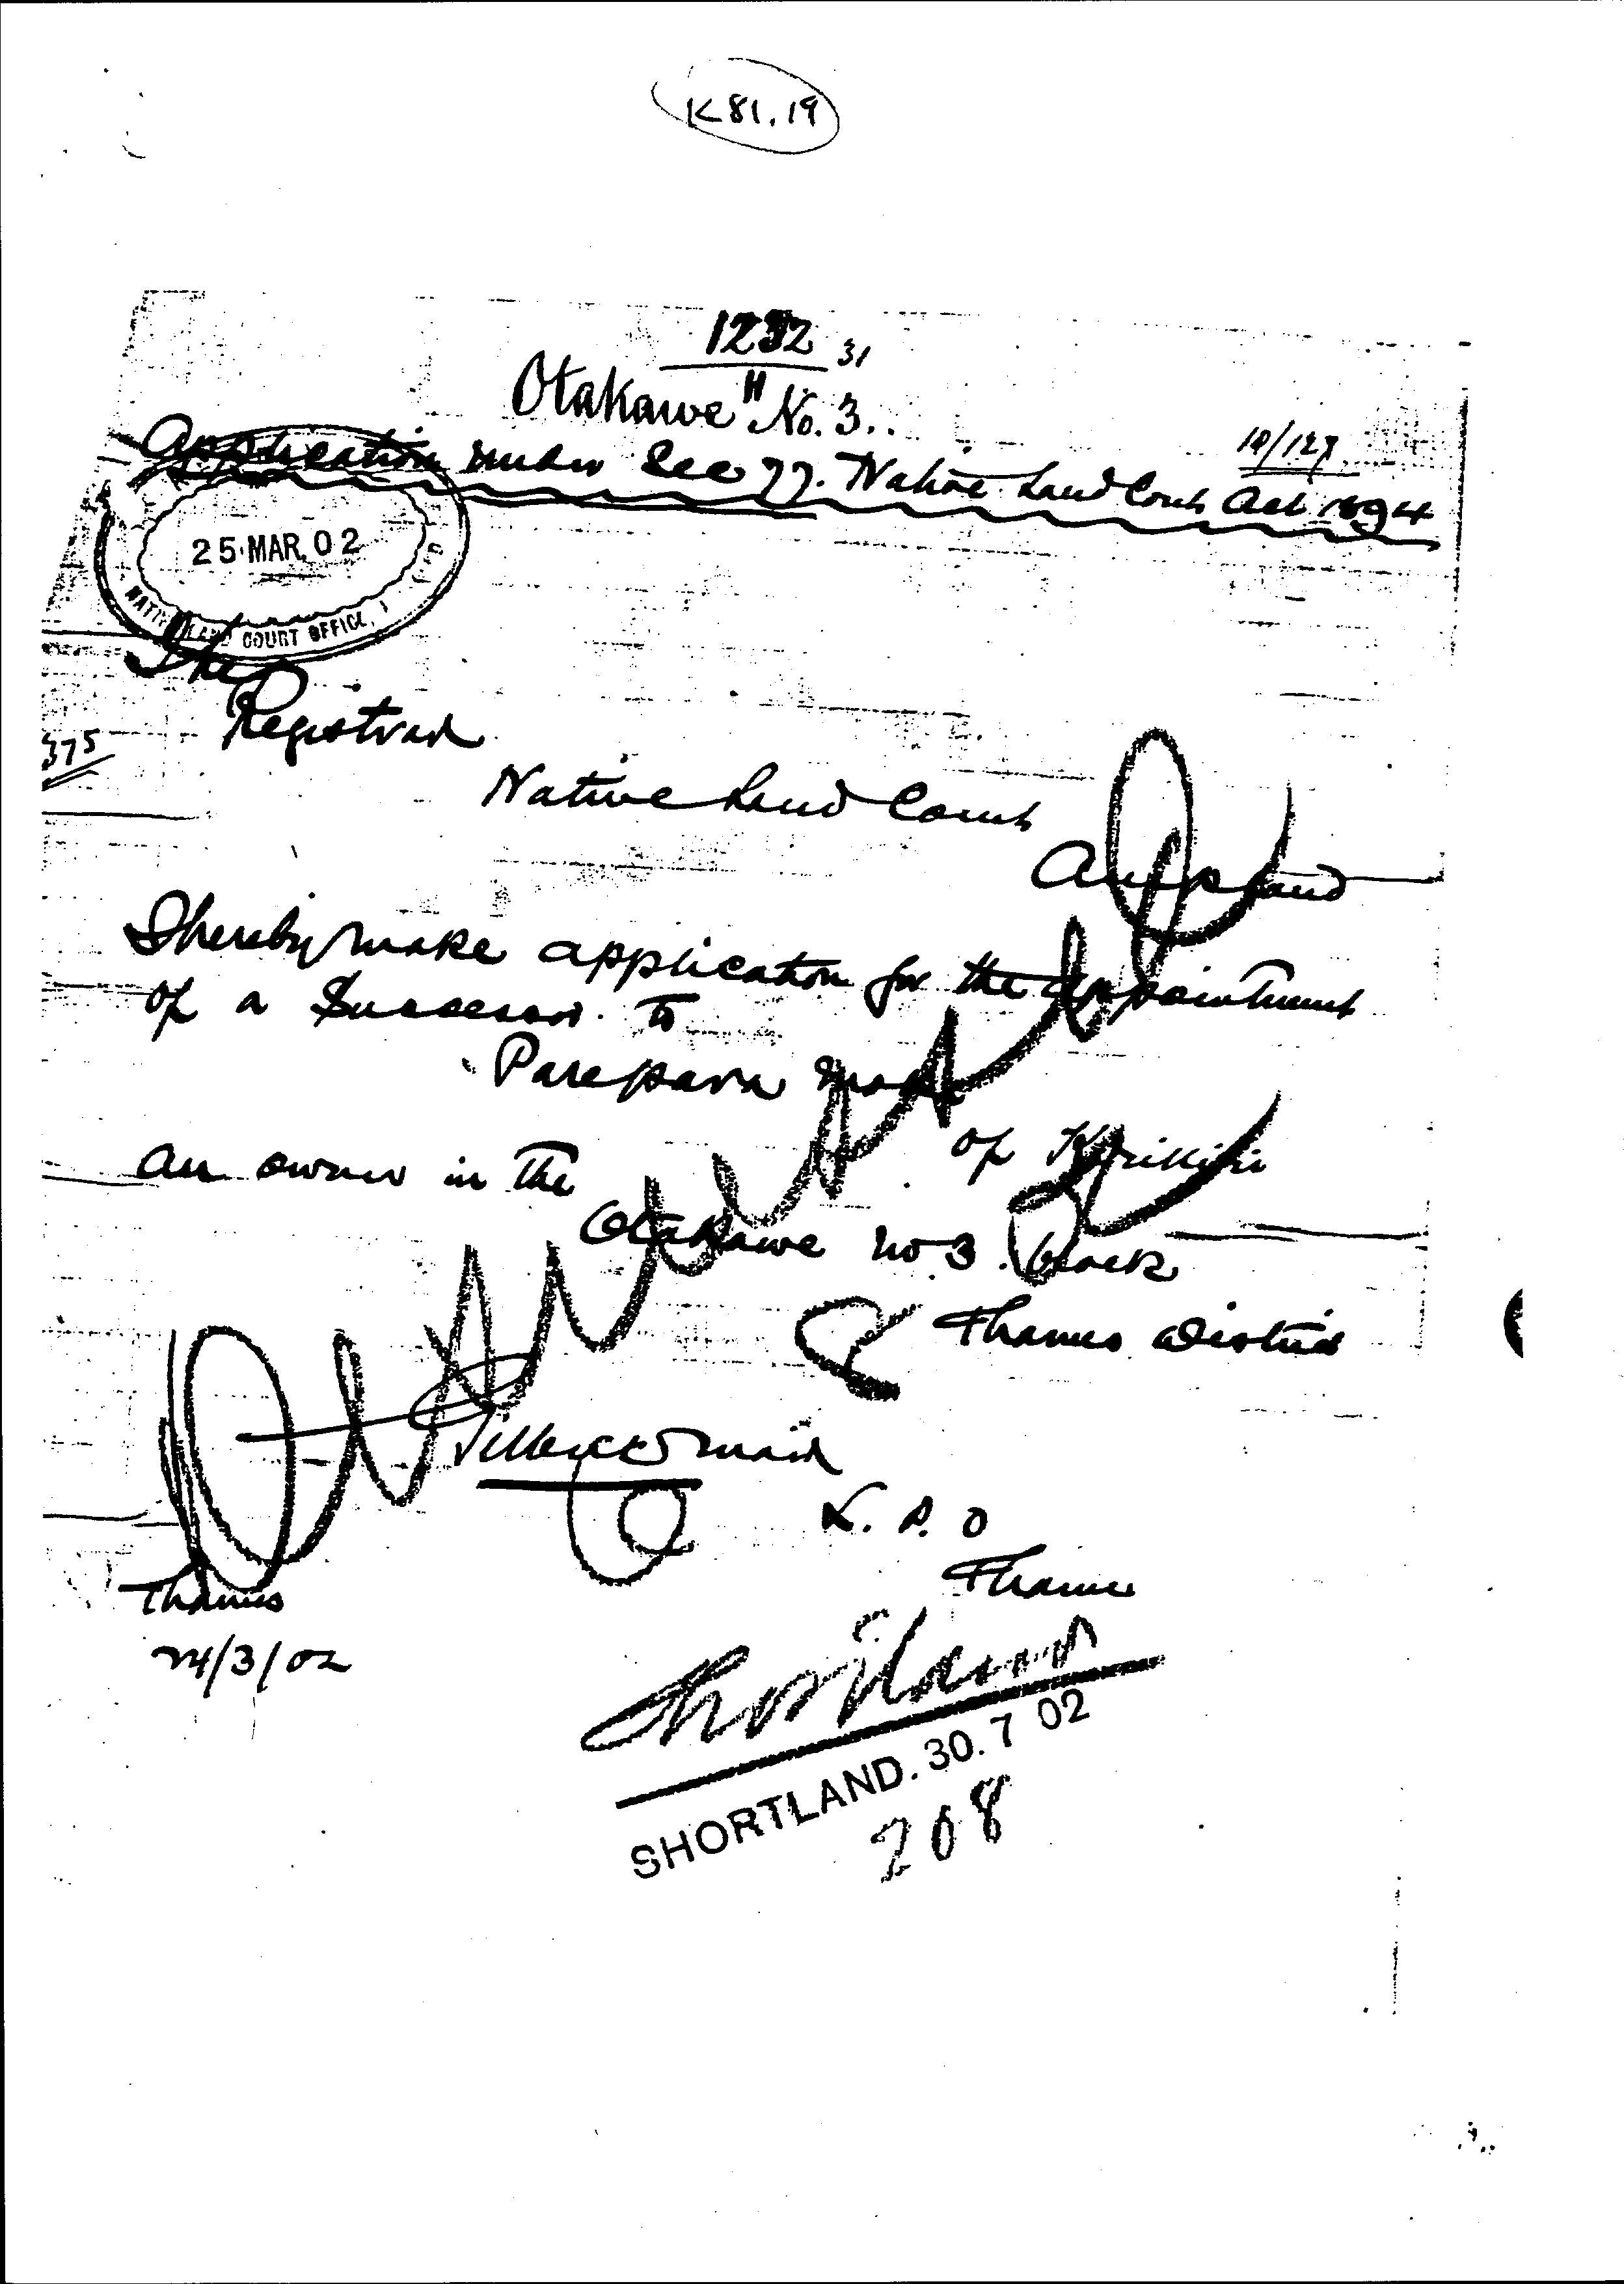 K81.19
1232 31
Otakawe" No. 3.
10/127
Application under Sec 77. Native Land Court Act 1894
25 MAR. 02
NATIVE LAND COURT OFFICE,
The
Registrar
375
Native Land Court
Auckland
I hereby make application for the appointment
of a Successor to
Parepara
of Kirikiri
an owner in the
Otakawe no 3 block
Thames District
L. P. O
Thames
Thames
24/3/02
SHORTLAND. 30. 7 02
208